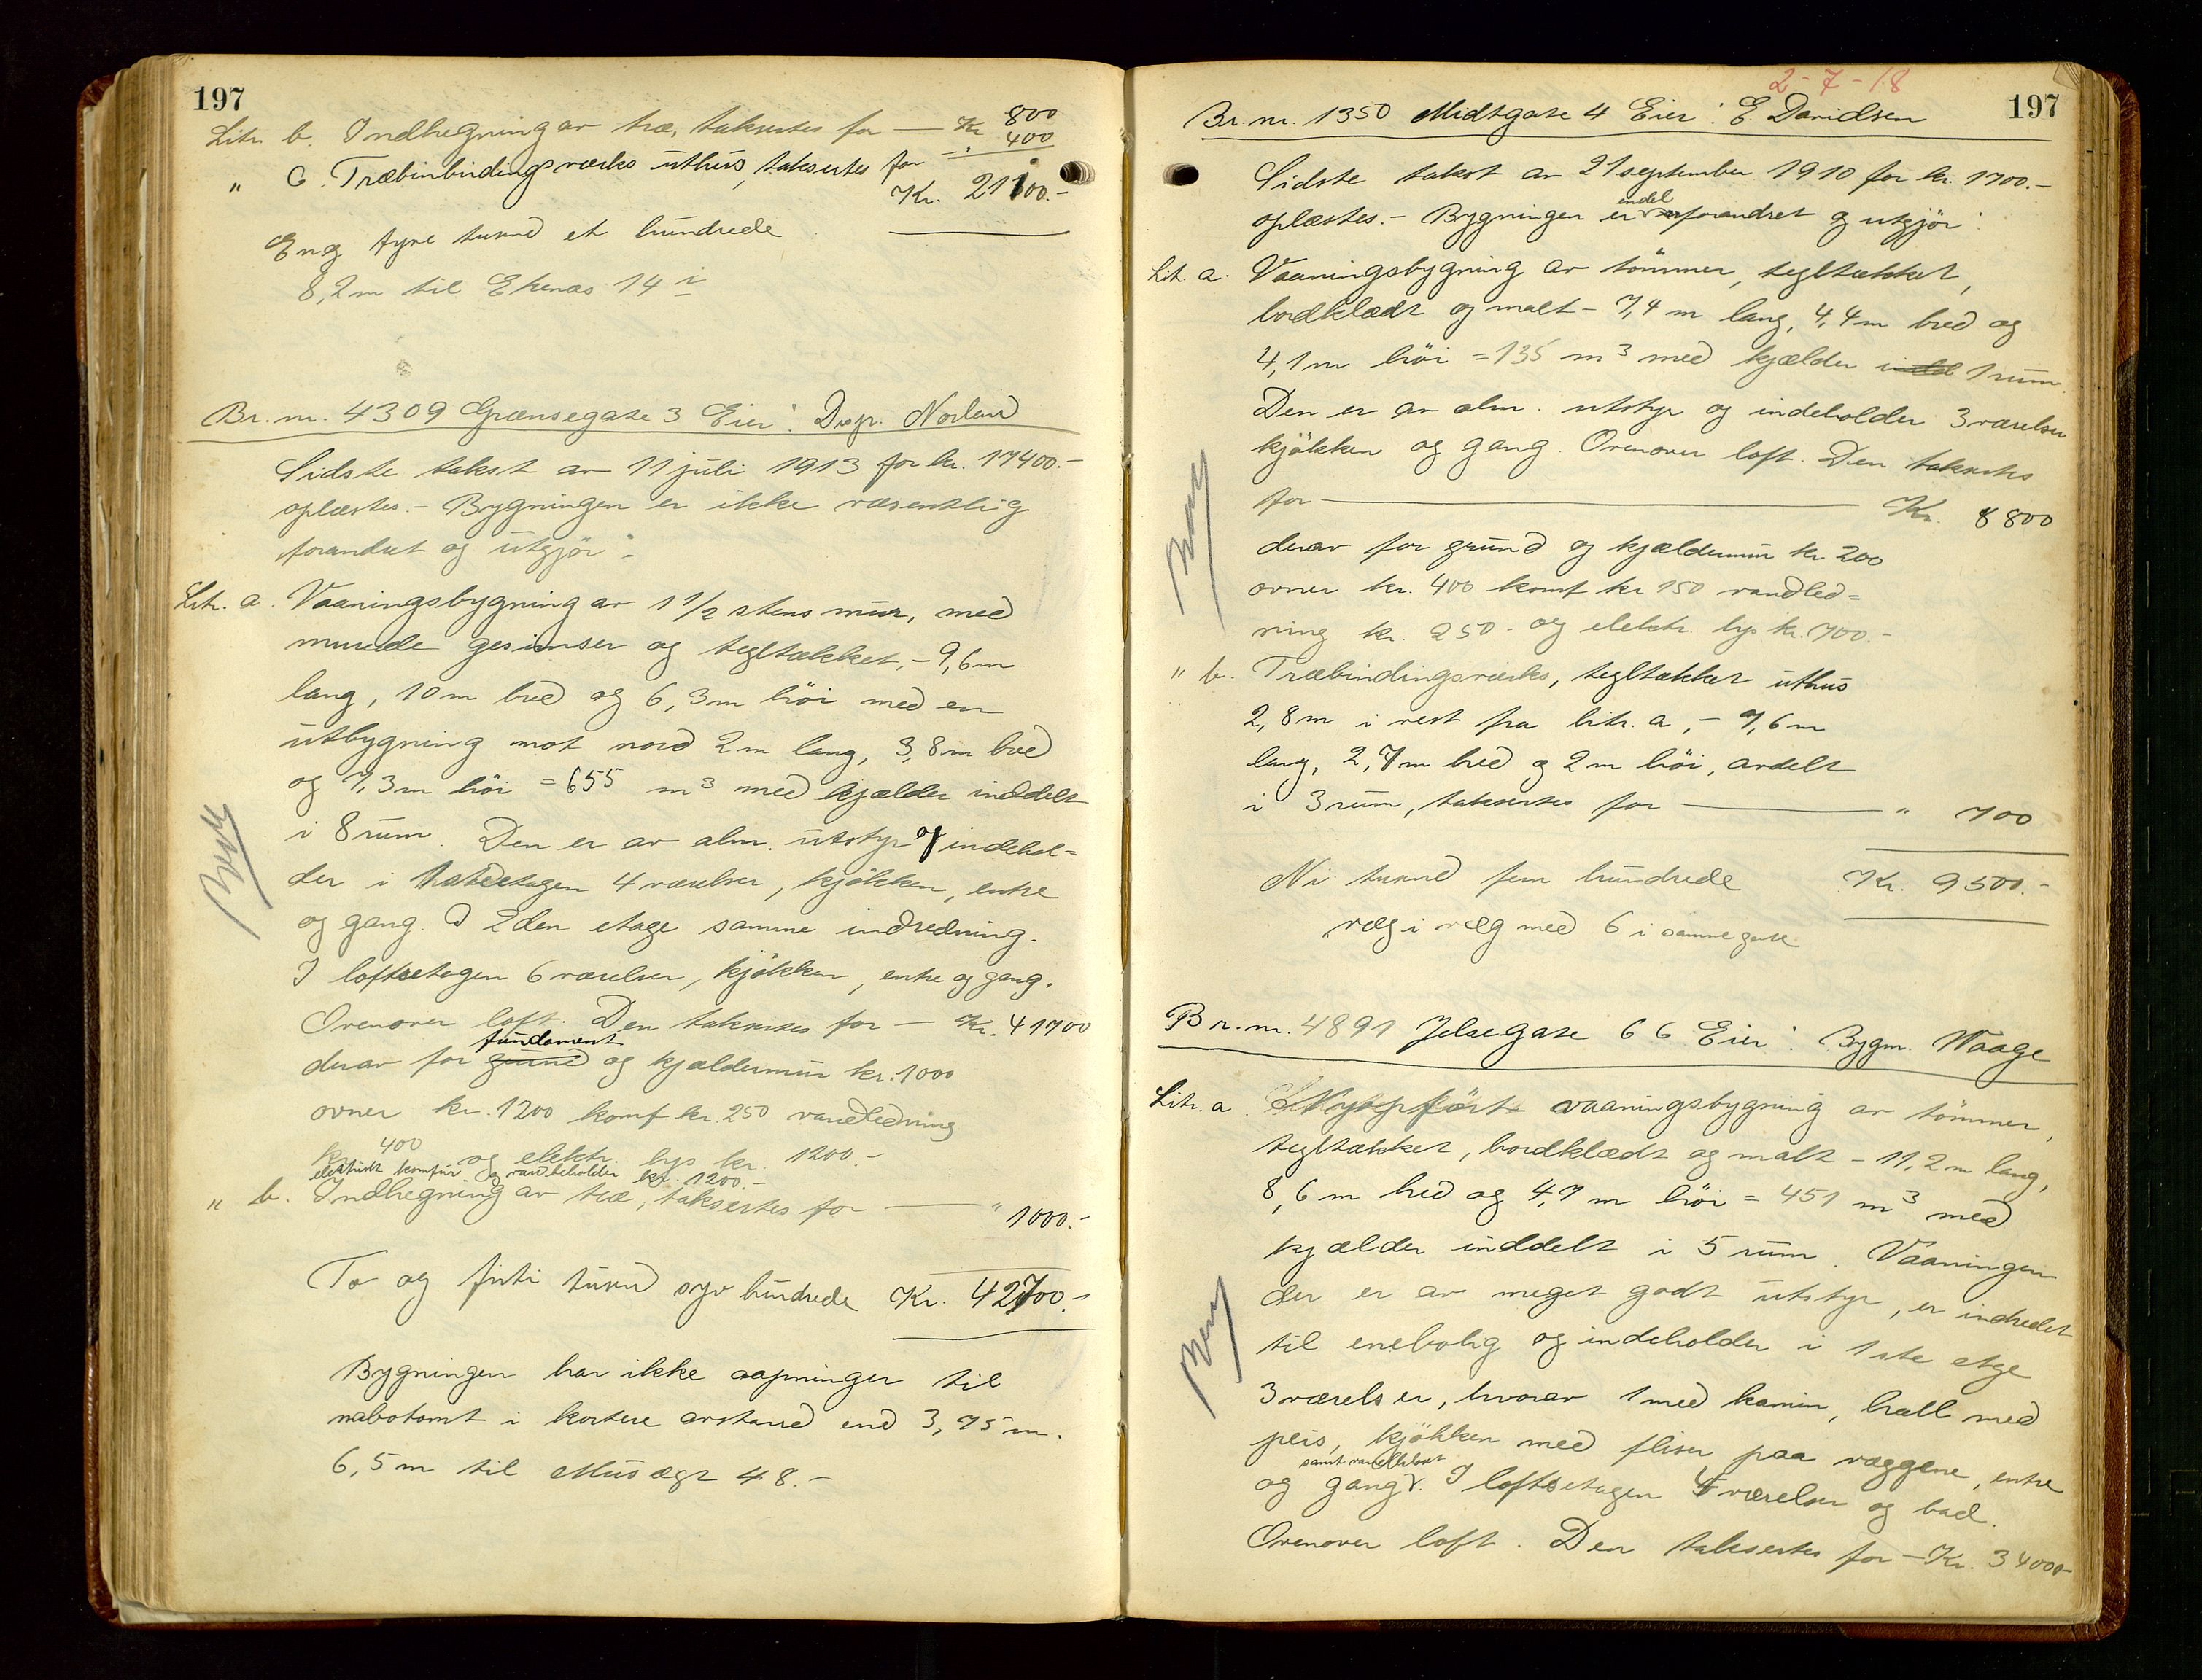 197
Litr. b. Indhegning av træ, taksertes for — Kr. 800
" c. Træbinbindingsværks uthus, taksertes for — " 400
Kr. 21100.-
En og tyve tusend et hundrede
8,2 m til Ekenæs 14 i
Br. nr. 4309 Grænsegate 3 Eier: Disp. Norland
Sidste takst av 11 juli 1913 for kr. 17400.-
oplæstes. - Bygningen er ikke væsentlig
forandret og utgjör:
Litr. a. Vaaningsbygning av 1 1/2 stens mur, med
murede gesimser og tegltækket, - 9,6 m
lang, 10 m bred og 6,3 m höi med en
utbygning mot nord 2 m lang, 3,8 m bred
og 7,3 m höi = 655 m3 med kjælder inddelt
i 8 rum. Den er av alm. utstyr og indehol=
der i 1ste etagen 4 værelser, kjökken, entre
og gang. I 2den etage samme indredning.
I loftsetagen 6 værelser, kjökken, entre og gang.
Ovenover loft. Den taksertes for — Kr. 41700
fundament
derav for grund og kjældermur kr. 1000
ovner kr. 1200 komf. kr. 250 vandledning
kr. 400 og elektr. lys kr. 1200.-
elektrisk komfur og vandbeholder kr. 1200.-
" b. Indhegning av træ, taksertes for — " 1000.-
To og firti tusend syv hundrede Kr. 42700.-
Bygningen har ikke aapninger til
nabotomt i kortere avstand end 3,75 m.
6,5 m til Musægt 48.-
2-7-18
197
Br. nr. 1350 Midtgate 4 Eier: E. Davidsen
Sidste takst av 21 september 1910 for kr. 1700.-
endel
oplæstes. - Bygningen er forandret og utgjör:
Lit. a. Vaaningsbygning av tömmer, tegltækket,
bordklædt og malt - 7,4 m lang, 4,4 m bred og
4,1 m höi = 135 m3 med kjælder indd 1 rum.
Den er av alm. utstyr og indeholder 3 værelser
kjökken og gang. Ovenover loft. Den taksertes
for — Kr. 8800
derav for grund og kjældermur kr 200
ovner kr. 400 komf kr 150 vandled=
ning kr. 250.- og elektr. lys kr. 700.-
" b. Træbindingsværks, tegltækket uthus
2,8 m i vest fra litr. a, - 7,6 m
lang, 2,7 m bred og 2 m höi, avdelt
i 3 rum, taksertes for — " 700
Ni tusend fem hundrede Kr. 9500.-
væg i væg med 6 i samme gate
Br. nr. 4891 Jelsegate 66 Eier: Bygm. Waage
Litr. a. Nyopfört vaaningsbygning av tömmer,
tegltækket, bordklædt og malt - 11,2 m lang,
8,6 m bred og 4,7 m höi = 451 m3 med
kjælder inddelt i 5 rum. Vaaningen
der er av meget godt utstyr, er indredet
til enebolig og indeholder i 1ste etge
3 værelser, hvorav 1 med kamin, hall med
peis, kjökken med fliser paa væggene, entre
samt vandklosett
og gang. I loftsetagen 4 værelser og bad.
Ovenover loft. Den taksertes for - Kr. 34000-